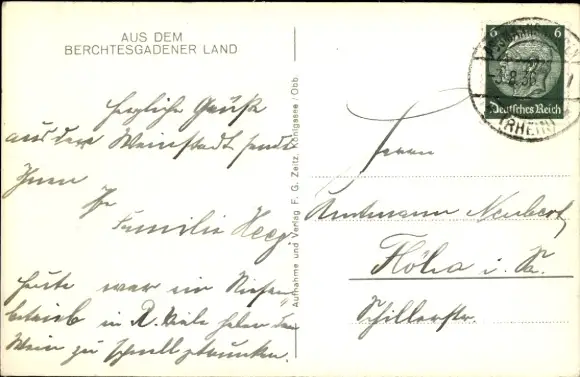 AUS DEM
BERCHTESGADENER LAND
Herzliche Grüße
aus der Weinstadt sendt
Ihnen
Familie Heeg.
Heute war ein Riesen
betrieb in R. Viele haben den
Wein zu schnell getrunken.
Aufnahme und Verlag F. G. Zeitz, Königssee/Obb.
6 6
Deutsches Reich
3.8.36
(RHEIN)
Herrn
Amtmann Neubert,
Flöha i. Sa.
Schillerstr.